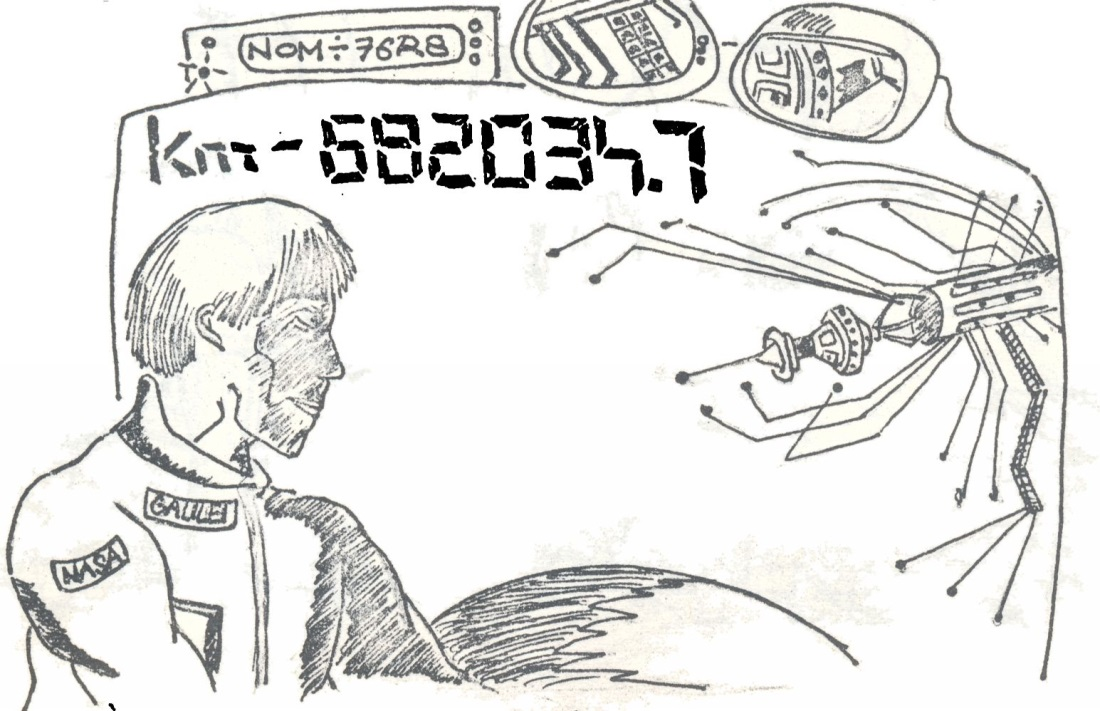 NOM÷76R8
Km-682034.7
GALILEI
NASA